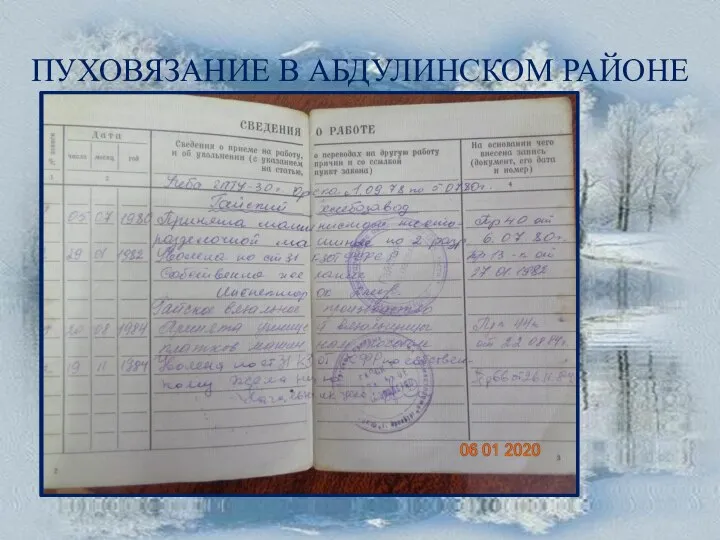 ПУХОВЯЗАНИЕ В АБДУЛИНСКОМ РАЙОНЕ
СВЕДЕНИЯ О РАБОТЕ
№ записи
Дата
число месяц год
Сведения о приеме на работу, о переводах на другую работу
и об увольнении (с указанием причин и со ссылкой
на статью, пункт закона)
На основании чего
внесена запись
(документ, его дата
и номер)
1 2 3 4
Учеба Орска 1.09.78 по
Гайский хлебозавод
05 07 1980 Принята машинистом тесто- Пр 40 от
разделочной машины по 2 разр. 6.07.80г.
29 01 1982 Уволена по ст 31 КЗОТ РСФСР Пр 13-к от
Собственное желание 27 01 1982
Инспектор ок
Гайское вязальное производство
20 08 1984 Принята ученицей вязальщицы Пр 44к
платков от 22 08 84г.
19 11 1984 Уволена по ст 31 КЗоТ РСФСР по собствен-
ному желанию
2 3
06 01 2020